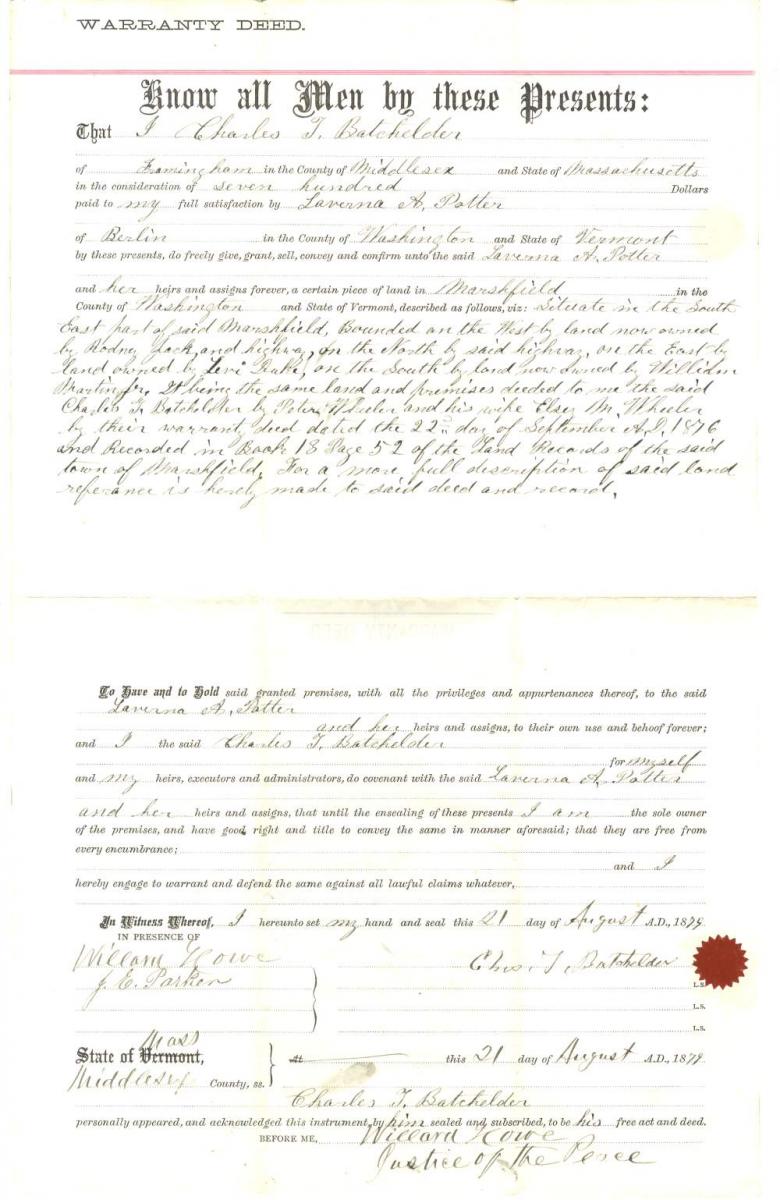 WARRANTY DEED.
Know all Men by these Presents:
That I Charles T. Batchelder
of Framingham in the County of Middlesex and State of Massachusetts
in the consideration of seven hundred Dollars
paid to my full satisfaction by Laverna A. Potter
of Berlin in the County of Washington and State of Vermont
by these presents, do freely give, grant, sell, convey and confirm unto the said Laverna A. Potter
and her heirs and assigns forever, a certain piece of land in Marshfield in the
County of Washington and State of Vermont, described as follows, viz: Situate in the South
East part of said Marshfield, Bounded on the West by land now owned
by Rodney Jack, and highway, on the North by said highway, on the East by
land owned by Levi on the South by land now owned by William
Martin Jr. It being the same land and premises deeded to me the said
Charles T. Batchelder by Peter Wheeler and his wife Elsey M. Wheeler
by their warrant, deed dated the 22nd day of September A.D. 1876
and Recorded in Book 18 Page 52 of the Land Records of the said
town of Marshfield. For a more full description of said land
referance is hereby made to said deed and record.
To Have and to Hold said granted premises, with all the privileges and appurtenances thereof, to the said
Laverna A. Potter
and her heirs and assigns, to their own use and behoof forever;
and I the said Charles T. Batchelder
for myself
and my heirs, executors and administrators, do covenant with the said Laverna A. Potter
and her heirs and assigns, that until the ensealing of these presents I am the sole owner
of the premises, and have good right and title to convey the same in manner aforesaid; that they are free from
every encumbrance;
and I
hereby engage to warrant and defend the same against all lawful claims whatever,
In Witness Whereof, I hereunto set my hand and seal this 21 day of August A.D., 1879
IN PRESENCE OF
Willard Howe Chas. T. Batchelder
J. E. Parker L.S.
L.S.
L.S.
Mass
State of Vermont, At this 21 day of August A.D., 1879
Middlesex County, ss.
Charles T. Batchelder
personally appeared, and acknowledged this instrument, by him sealed and subscribed, to be his free act and deed.
BEFORE ME, Willard Howe
Justice of the Peace